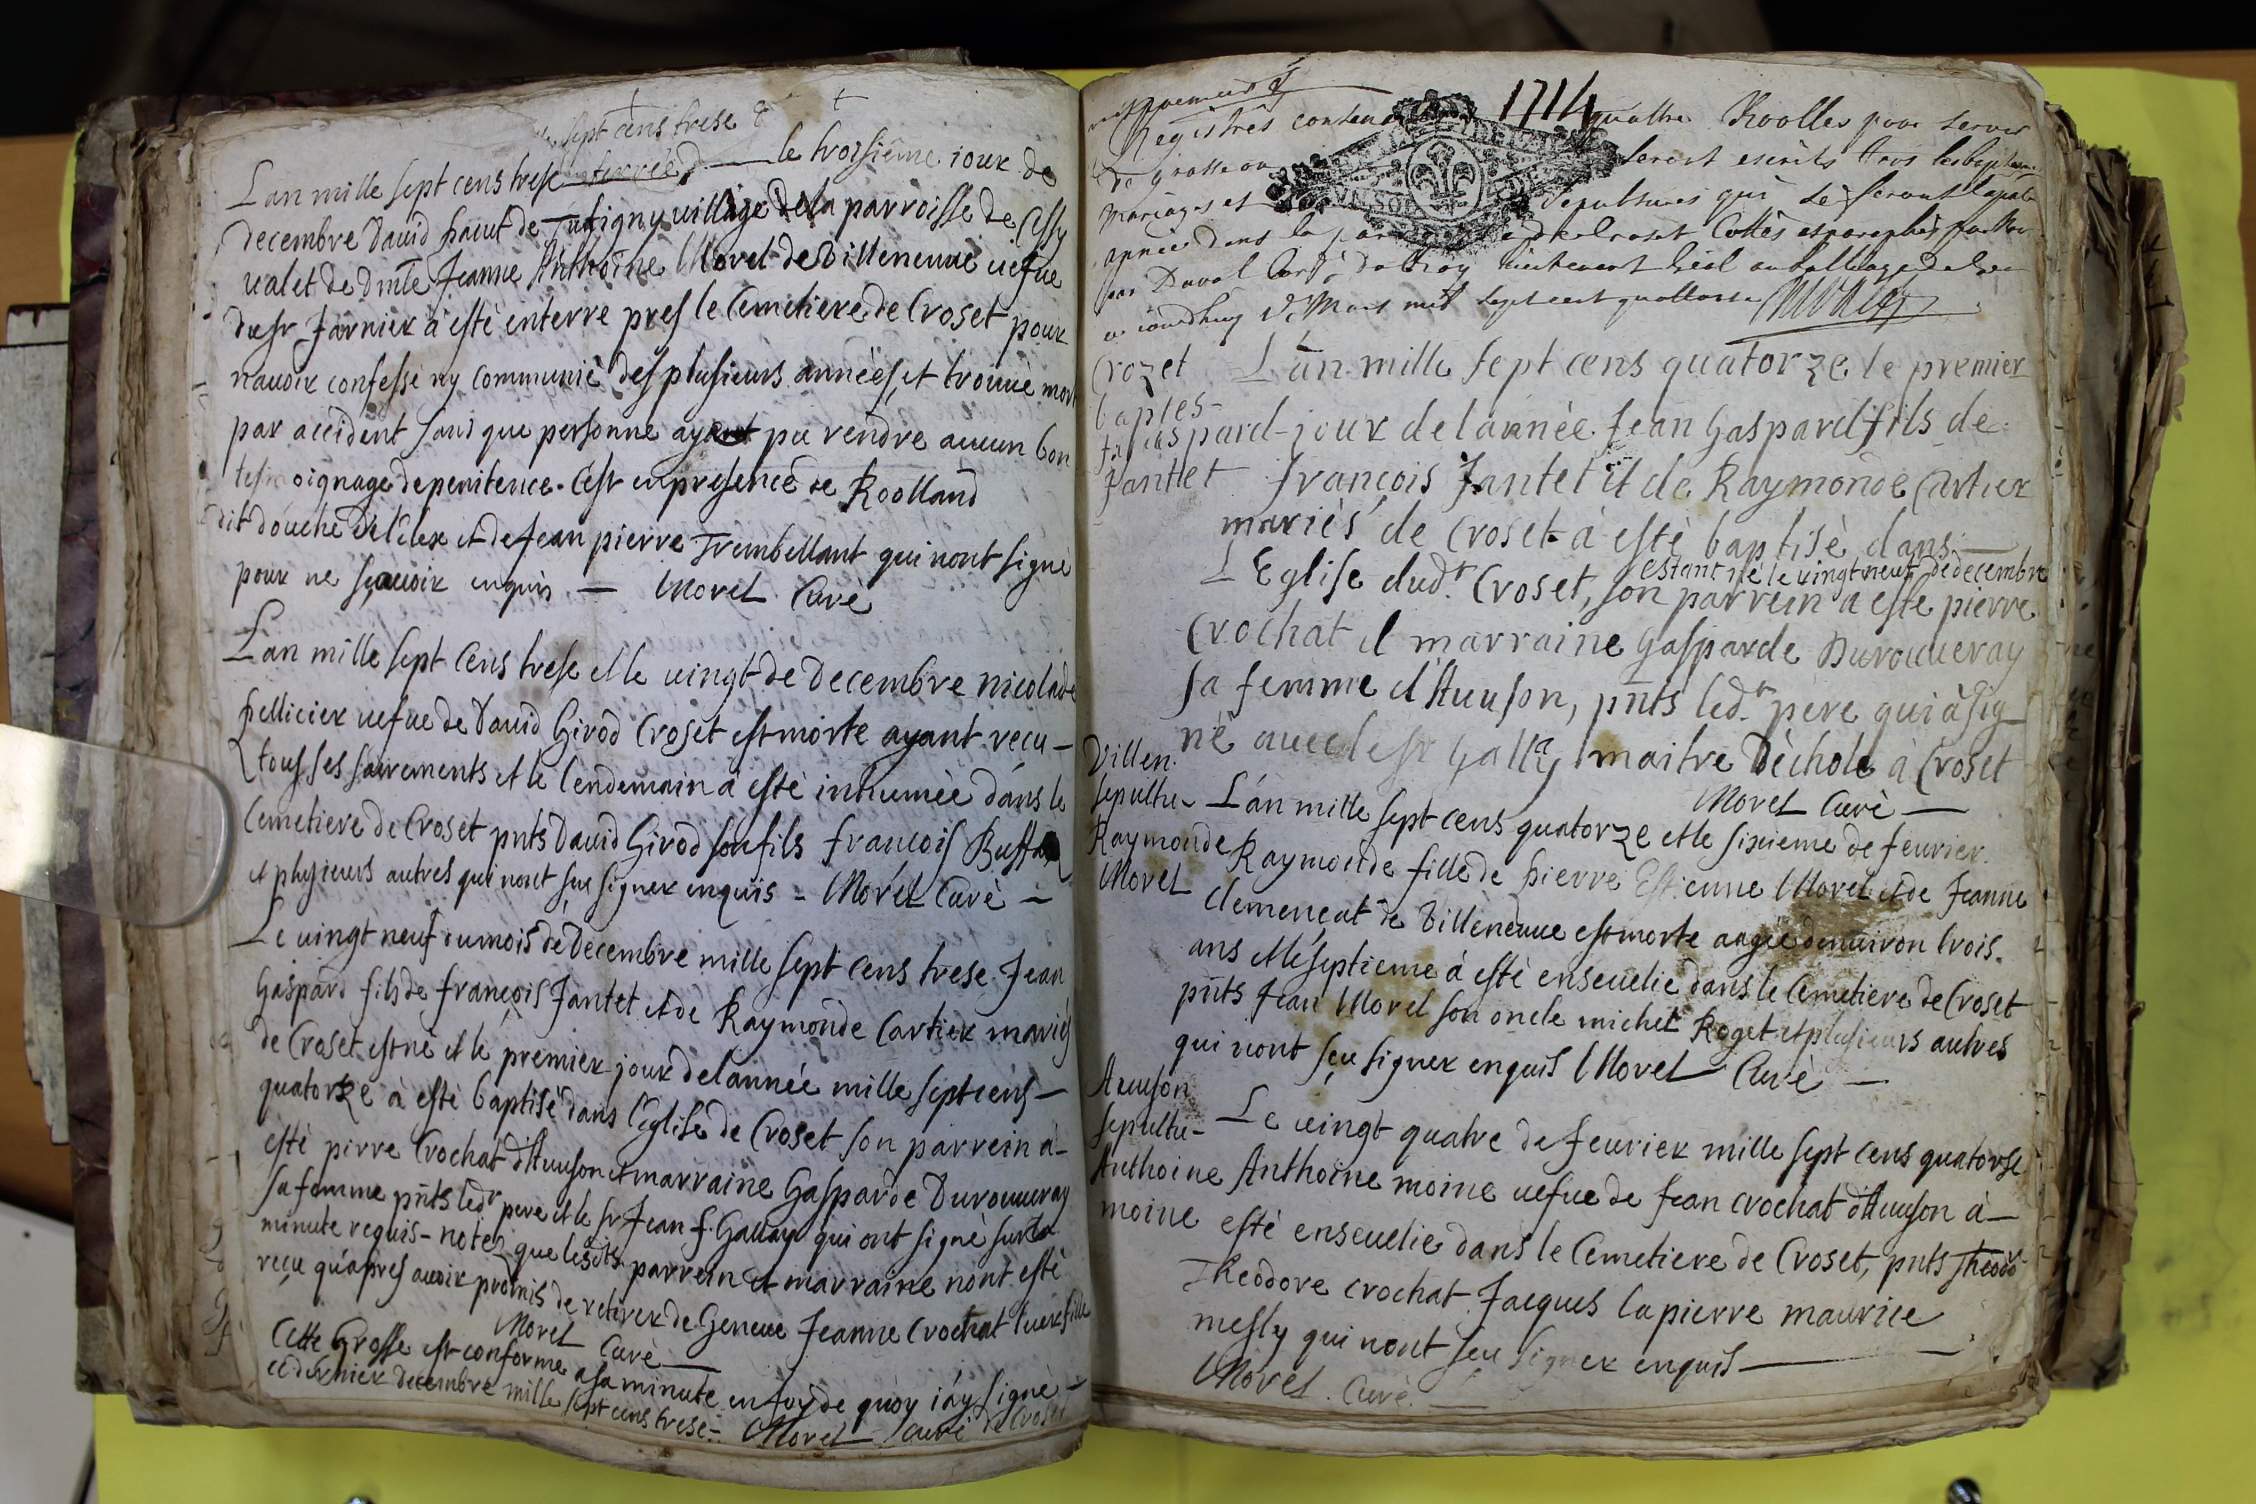 sept cens trese &
Lan mille sept cens trese le troisième jour de
decembre David haut de village dela parroisse de Cessy
valet de dmlle Jeanne Anthoine Morel de Villeneuve vefue
du sr Jarnier à esté enterre pres le Cemetiere de Croset pour
nauoir confessé ny communié des plusieurs années, et trouué mort
par accident sans que personne ayant pu rendre aucun bon
tesmoignage depenitence. Cest en presence de Roolland
dit douche de lélex et de Jean pierre Trembellant qui nont signé
pour ne sçauoir enquis — Morel Curé
Lan mille sept Cens trese et le uingt de Decembre nicolade
pellicier uefue de Dauid Girod Croset est morte ayant reçu —
tous ses sacrements et le lendemain à esté inhumée dans le
Cemetiere de Croset pnts Dauid Girod son fils françois Buffa
et plusieurs autres qui nont sçu signer enquis – Morel Curé —
Le uingt neuf du mois de Decembre mille sept cens trese Jean
Gaspard fils de françois Jantet et de Raymonde Cartier mariés
de Croset est né et le premier jour delannée mille septcens —
quatorze à esté baptisé dans l'église de Croset son parrein à –
esté pirre Crochat d'Auuson et marraine Gasparde Durouueray
sa femme pnts ledr pere et le sr Jean f. Gallay qui ont signé sur la
minute requis – notez que lesdits parrein et marraine nont esté
reçu qu'apres auoir promis de retirer de Geneue Jeanne Crochat leur fille
Morel Curé —
Cette Grosse est conforme a sa minute en foy de quoy i'ay signé —
ce dernier decembre mille sept cens trese – Morel Curé de Croset
1714
Registres contena quattre Roolles pour servir
de grosse ou seront escrits tous les baptesmes
mariages et sepultures qui se feront la pnte
année dans la par de Croset Cottés et paraphés par Nou
Duval
ce jourdhuy Mars mil sept cent quattorze
Crozet L'an mille sept cens quatorze le premier
baptes–
gaspard jour delannée Jean Gaspard fils de
Jantlet françois Jantet et de Raymonde Cartier
mariés de Croset à esté baptisé dans —
estant né le uingt neuf de decembre
L'Eglise dudt Croset, son parrein a esté pierre
Crochat et marraine Gasparde Durouueray
sa femme d'Auuson, pnts ledr père qui à sig–
né auec le sr Gallay maitre D'échole à Croset
Morel Curé —
Villen.
sepultu– L'an mille sept cens quatorze et le sixieme de feurier
Raymonde Raymonde fille de pierre Estienne Morel et de Jeanne
Morel Clemençat de Villeneuue est morte aagée denuiron trois
ans et le septieme à esté enseuelie dans le Cemetiere de Croset
pnts Jean Morel son oncle michel Roget et plusieurs autres
qui nont sçu signer enquis Morel Curé —
Auuson
sepultu– Le uingt quatre de feurier mille sept cens quatorse
Anthoine Anthoine moine uefue de Jean crochat d'Auuson à —
moine esté enseuelie dans le Cemetiere de Croset, pnts Theodor
Theodore crochat Jacques lapierre maurice
mesly qui nont sçu signer enquis —
Morel. Curé. —